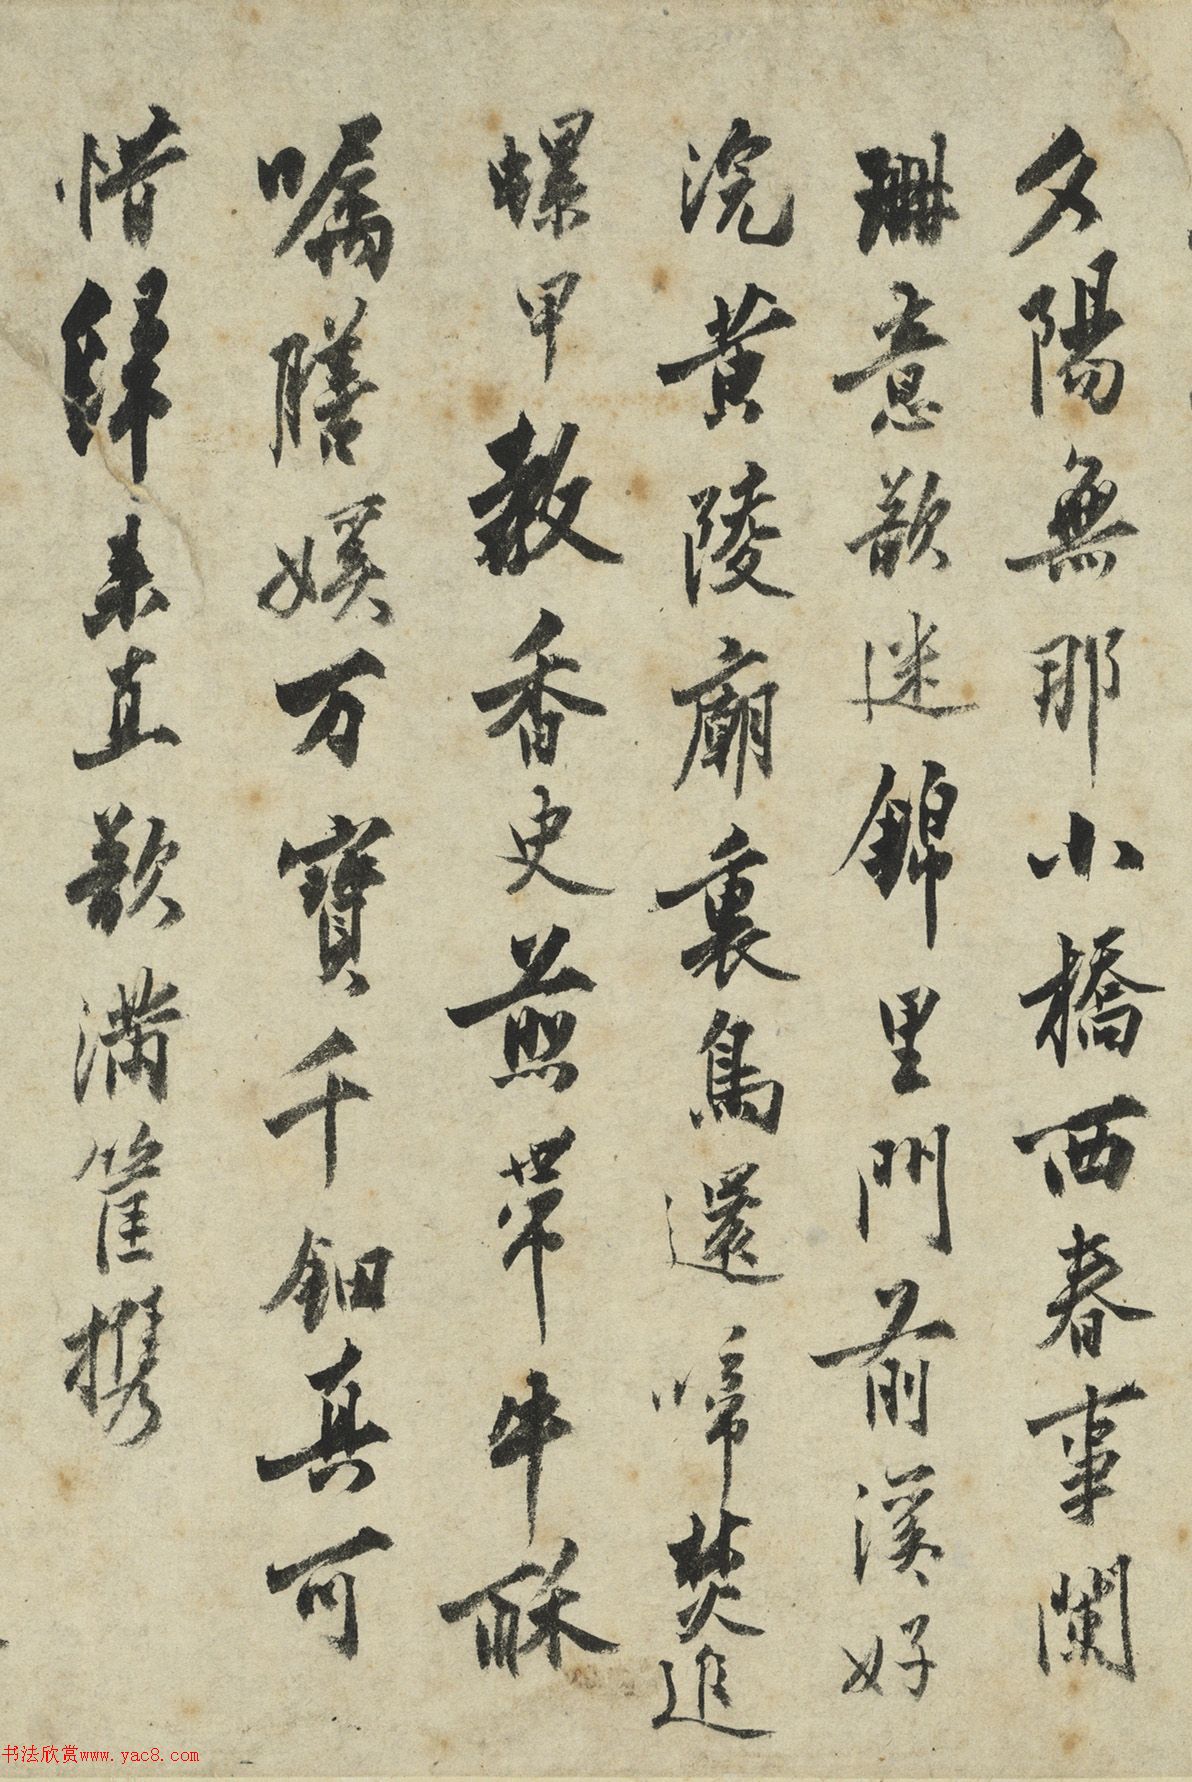 夕陽無那小橋西春事闌
珊意欲迷錦里門前溪好
浣黃陵廟裏鳥還啼焚追
螺甲教香史煎帶牛酥
嘱膳娱万寳千鈿真可
惜歸来直欲满筐携
书法欣赏www.yac8.com